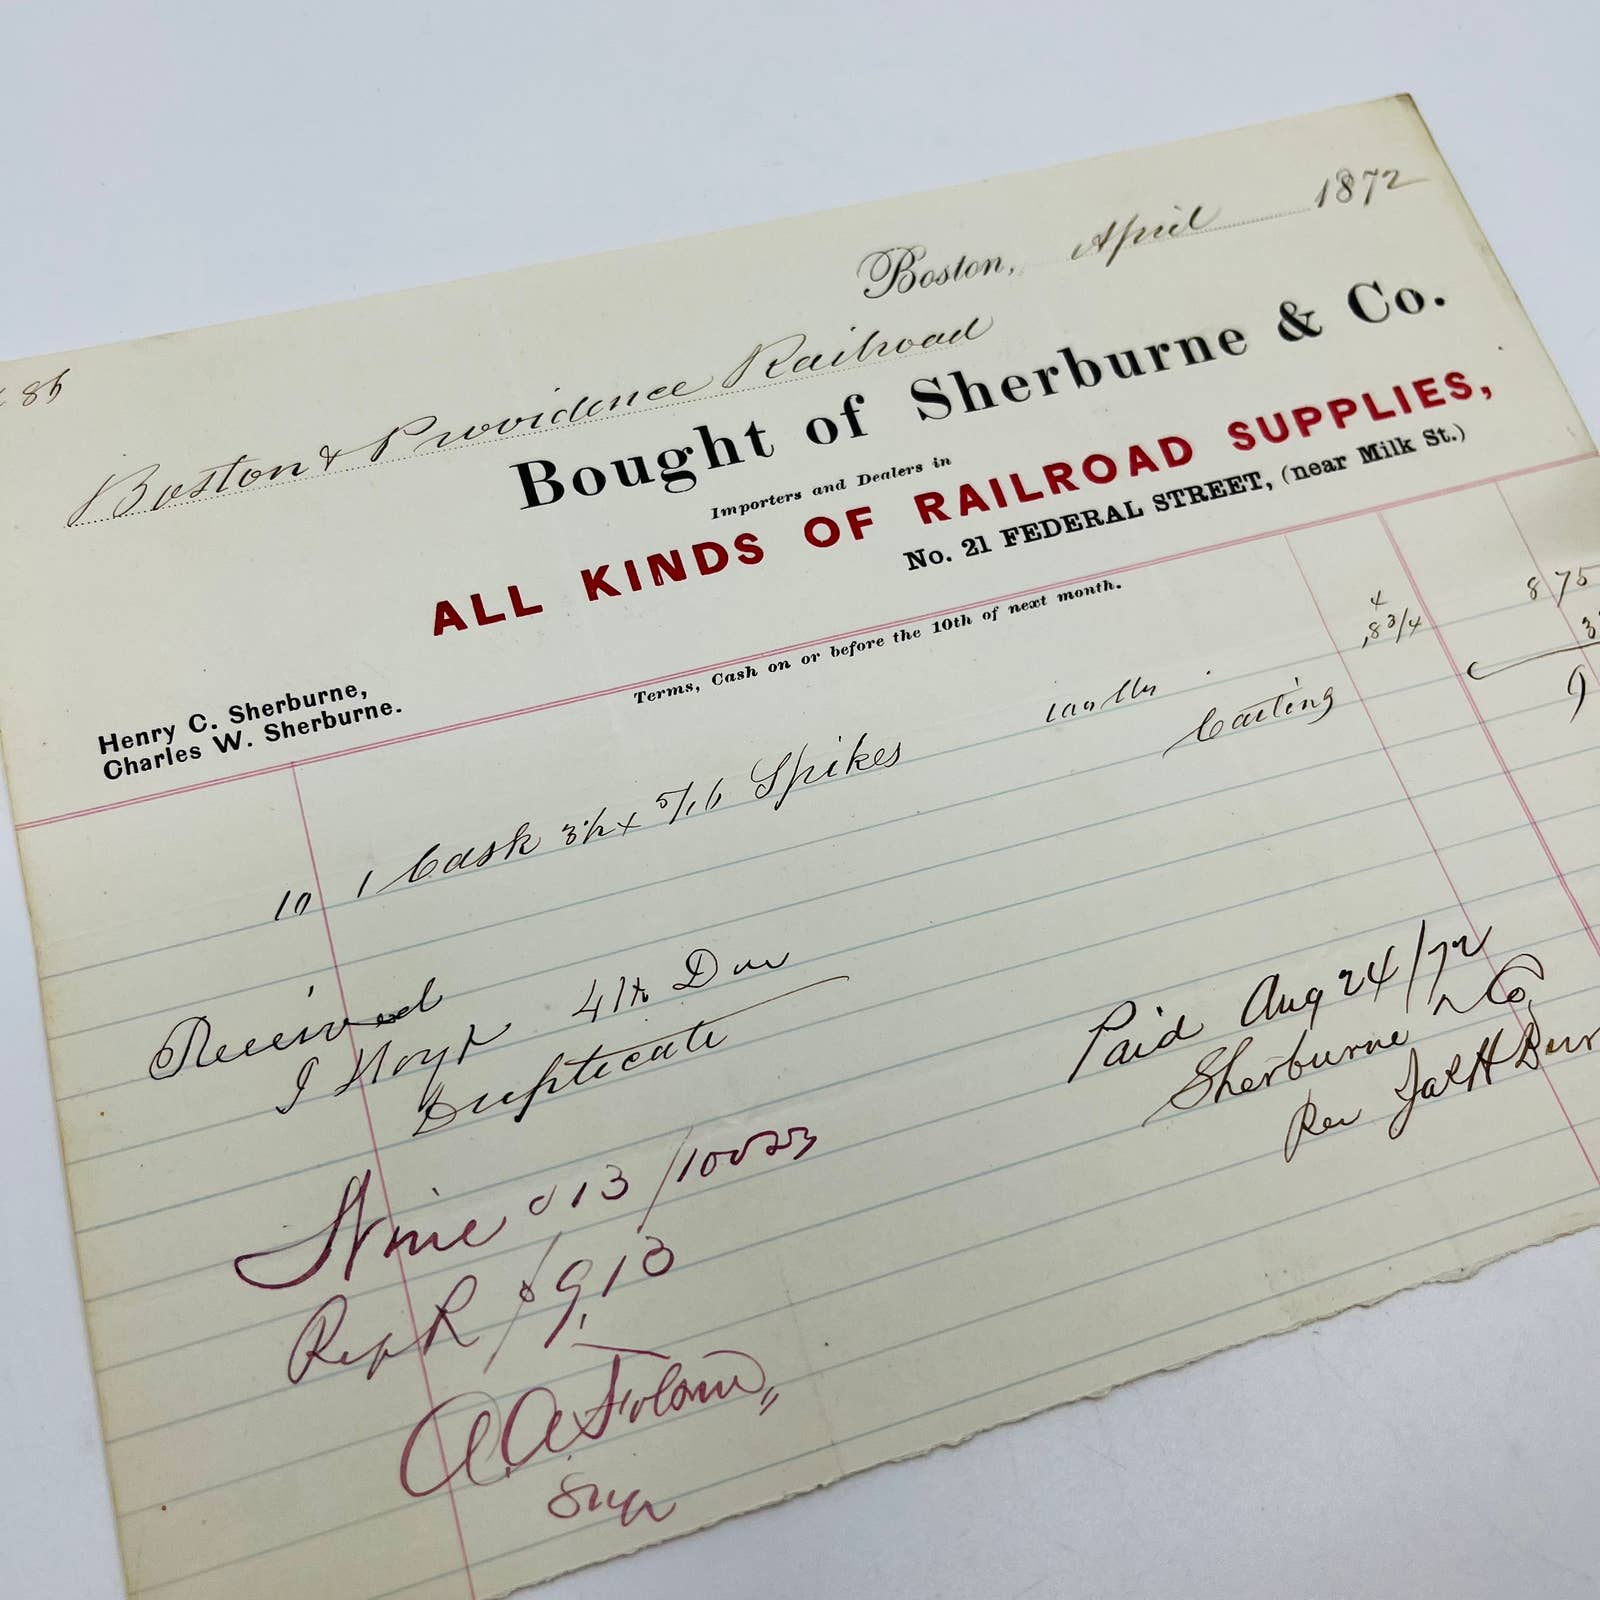 Boston, April 1872
86
Boston & Providence Railroad
Bought of Sherburne & Co.
Importers and Dealers in
ALL KINDS OF RAILROAD SUPPLIES,
No. 21 FEDERAL STREET, (near Milk St.)
Henry C. Sherburne,
Charles W. Sherburne.
Terms, Cash on or before the 10th of next month.
10 1 Cask 3 1/2 x 5/16 Spikes 100 lbs ,8 3/4 8 75
Carting 3
9
Received
J Hoyt 4th Div
Duplicate
Paid Aug 24/72
Sherburne & Co,
Per
913/10023
Rep R / 9,13
A. A. Folsom,
Sup